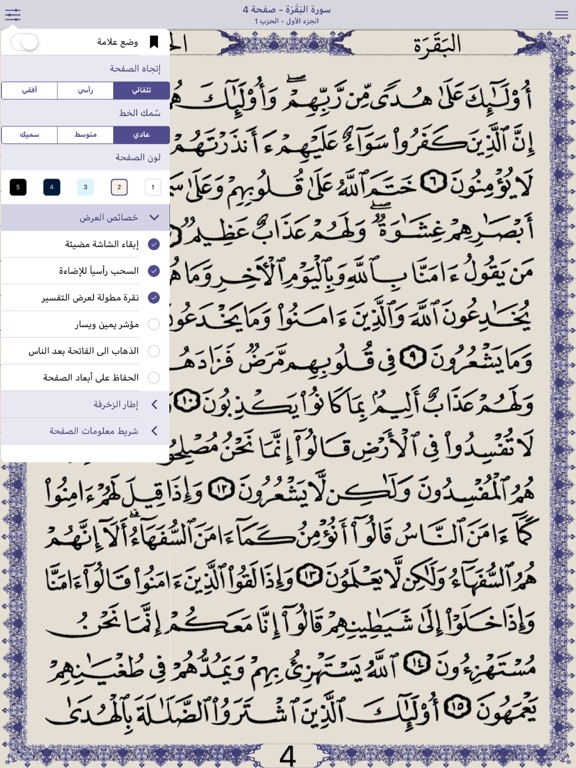 سورة البَقَرَة - صفحة 4
الجزء الأول - الحزب 1
البَقَرَة
وضع علامة
إتجاه الصفحة
تلقائي
رأسي
أفقي
سُمك الخط
عادي
متوسط
سميك
لون الصفحة
1
2
3
4
5
خصائص العرض
إبقاء الشاشة مضيئة
السحب رأسياً للإضاءة
نقرة مطولة لعرض التفسير
مؤشر يمين ويسار
الذهاب الى الفاتحة بعد الناس
الحفاظ على أبعاد الصفحة
إطار الزخرفة
شريط معلومات الصفحة
أُوْلَـٰٓئِكَ عَلَىٰ هُدًى مِّن رَّبِّهِمْۖ وَأُوْلَـٰٓئِكَ
إِنَّ ٱلَّذِينَ كَفَرُوا۟ سَوَآءٌ عَلَيْهِمْ ءَأَنذَرْتَهُمْ
لَا يُؤْمِنُونَ ٦ خَتَمَ ٱللَّهُ عَلَىٰ قُلُوبِهِمْ وَعَلَىٰ
أَبْصَـٰرِهِمْ غِشَـٰوَةٌۖ وَلَهُمْ عَذَابٌ عَظِيمٌ
مَن يَقُولُ ءَامَنَّا بِٱللَّهِ وَبِٱلْيَوْمِ ٱلْـَٔاخِرِ وَمَا
يُخَـٰدِعُونَ ٱللَّهَ وَٱلَّذِينَ ءَامَنُوا۟ وَمَا يَخْدَعُونَ
وَمَا يَشْعُرُونَ ٩ فِى قُلُوبِهِم مَّرَضٌ فَزَادَهُ
وَلَهُمْ عَذَابٌ أَلِيمٌۢ بِمَا كَانُوا۟ يَكْذِبُونَ ١٠
لَا تُفْسِدُوا۟ فِى ٱلْأَرْضِ قَالُوٓا۟ إِنَّمَا نَحْنُ مُصْلِحُو
هُمُ ٱلْمُفْسِدُونَ وَلَـٰكِن لَّا يَشْعُرُونَ ١٢ وَإِذَا قِيلَ لَهُمْ ءَامِنُوا۟
كَمَآ ءَامَنَ ٱلنَّاسُ قَالُوٓا۟ أَنُؤْمِنُ كَمَآ ءَامَنَ ٱلسُّفَهَآءُۗ أَلَآ إِنَّهُمْ
هُمُ ٱلسُّفَهَآءُ وَلَـٰكِن لَّا يَعْلَمُونَ ١٣ وَإِذَا لَقُوا۟ ٱلَّذِينَ ءَامَنُوا۟ قَالُوٓا۟ ءَامَنَّا
وَإِذَا خَلَوْا۟ إِلَىٰ شَيَـٰطِينِهِمْ قَالُوٓا۟ إِنَّا مَعَكُمْ إِنَّمَا نَحْنُ
مُسْتَهْزِءُونَ ١٤ ٱللَّهُ يَسْتَهْزِئُ بِهِمْ وَيَمُدُّهُمْ فِى طُغْيَـٰنِهِمْ
يَعْمَهُونَ ١٥ أُوْلَـٰٓئِكَ ٱلَّذِينَ ٱشْتَرَوُا۟ ٱلضَّلَـٰلَةَ بِٱلْهُدَىٰ
4